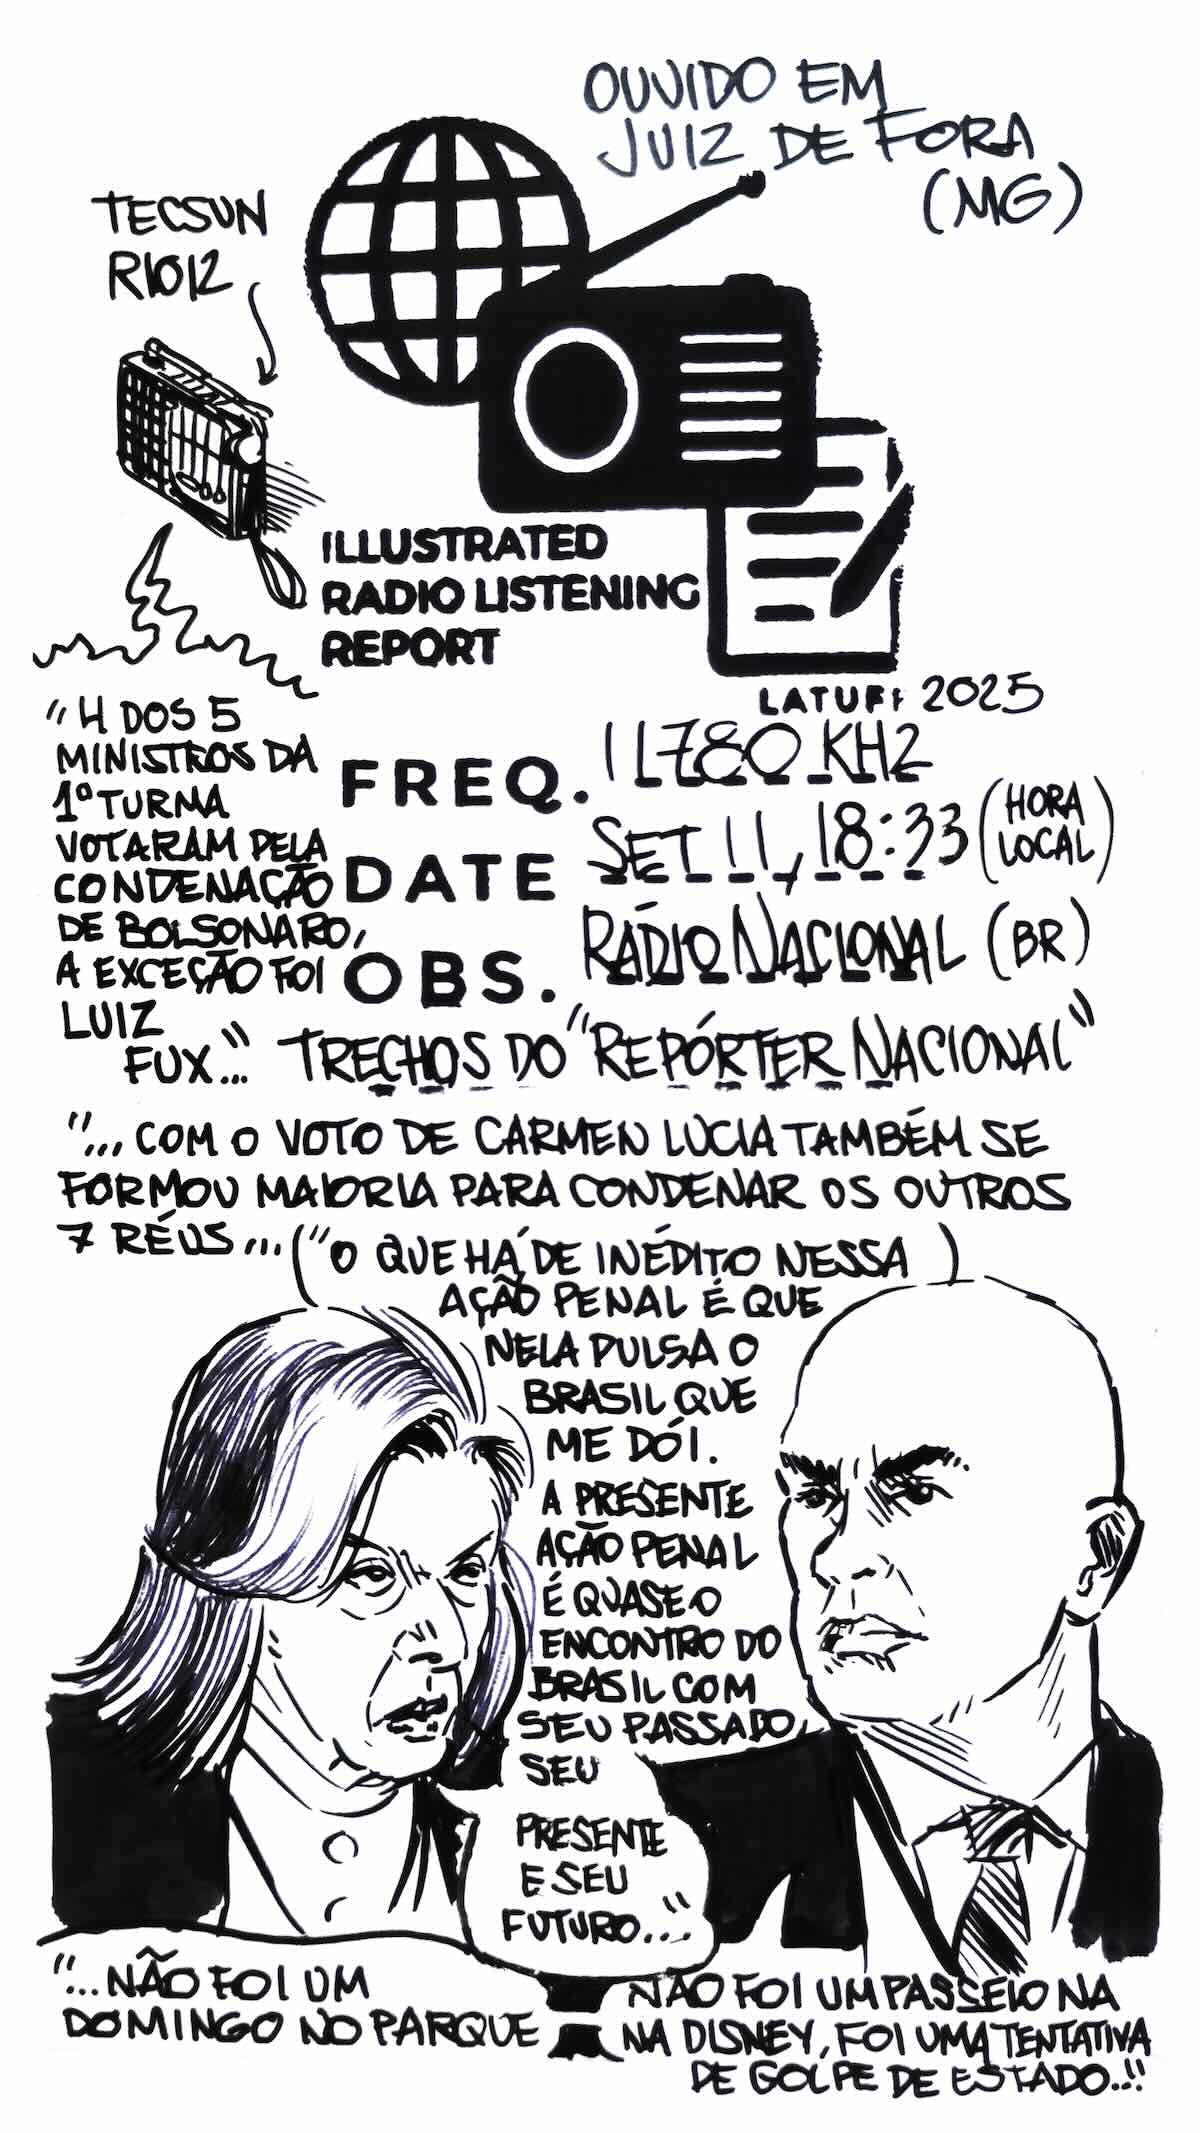 OUVIDO EM
JUIZ DE FORA
(MG)
TECSUN
R1012
ILLUSTRATED
RADIO LISTENING
REPORT
LATUFF 2025
FREQ. 11780 KHZ
DATE SET 11, 18:33 (HORA LOCAL)
OBS. RÁDIO NACIONAL (BR)
TRECHOS DO "REPÓRTER NACIONAL"
"4 DOS 5
MINISTROS DA
1ª TURMA
VOTARAM PELA
CONDENAÇÃO
DE BOLSONARO,
A EXCEÇÃO FOI
LUIZ
FUX..."
"...COM O VOTO DE CARMEN LUCIA TAMBÉM SE
FORMOU MAIORIA PARA CONDENAR OS OUTROS
7 RÉUS...
("O QUE HÁ DE INÉDITO NESSA)
AÇÃO PENAL É QUE
NELA PULSA O
BRASIL QUE
ME DÓI.
A PRESENTE
AÇÃO PENAL
É QUASE O
ENCONTRO DO
BRASIL COM
SEU PASSADO,
SEU
PRESENTE
E SEU
FUTURO..."
"...NÃO FOI UM
DOMINGO NO PARQUE
NÃO FOI UM PASSEIO NA
NA DISNEY, FOI UMA TENTATIVA
DE GOLPE DE ESTADO..."